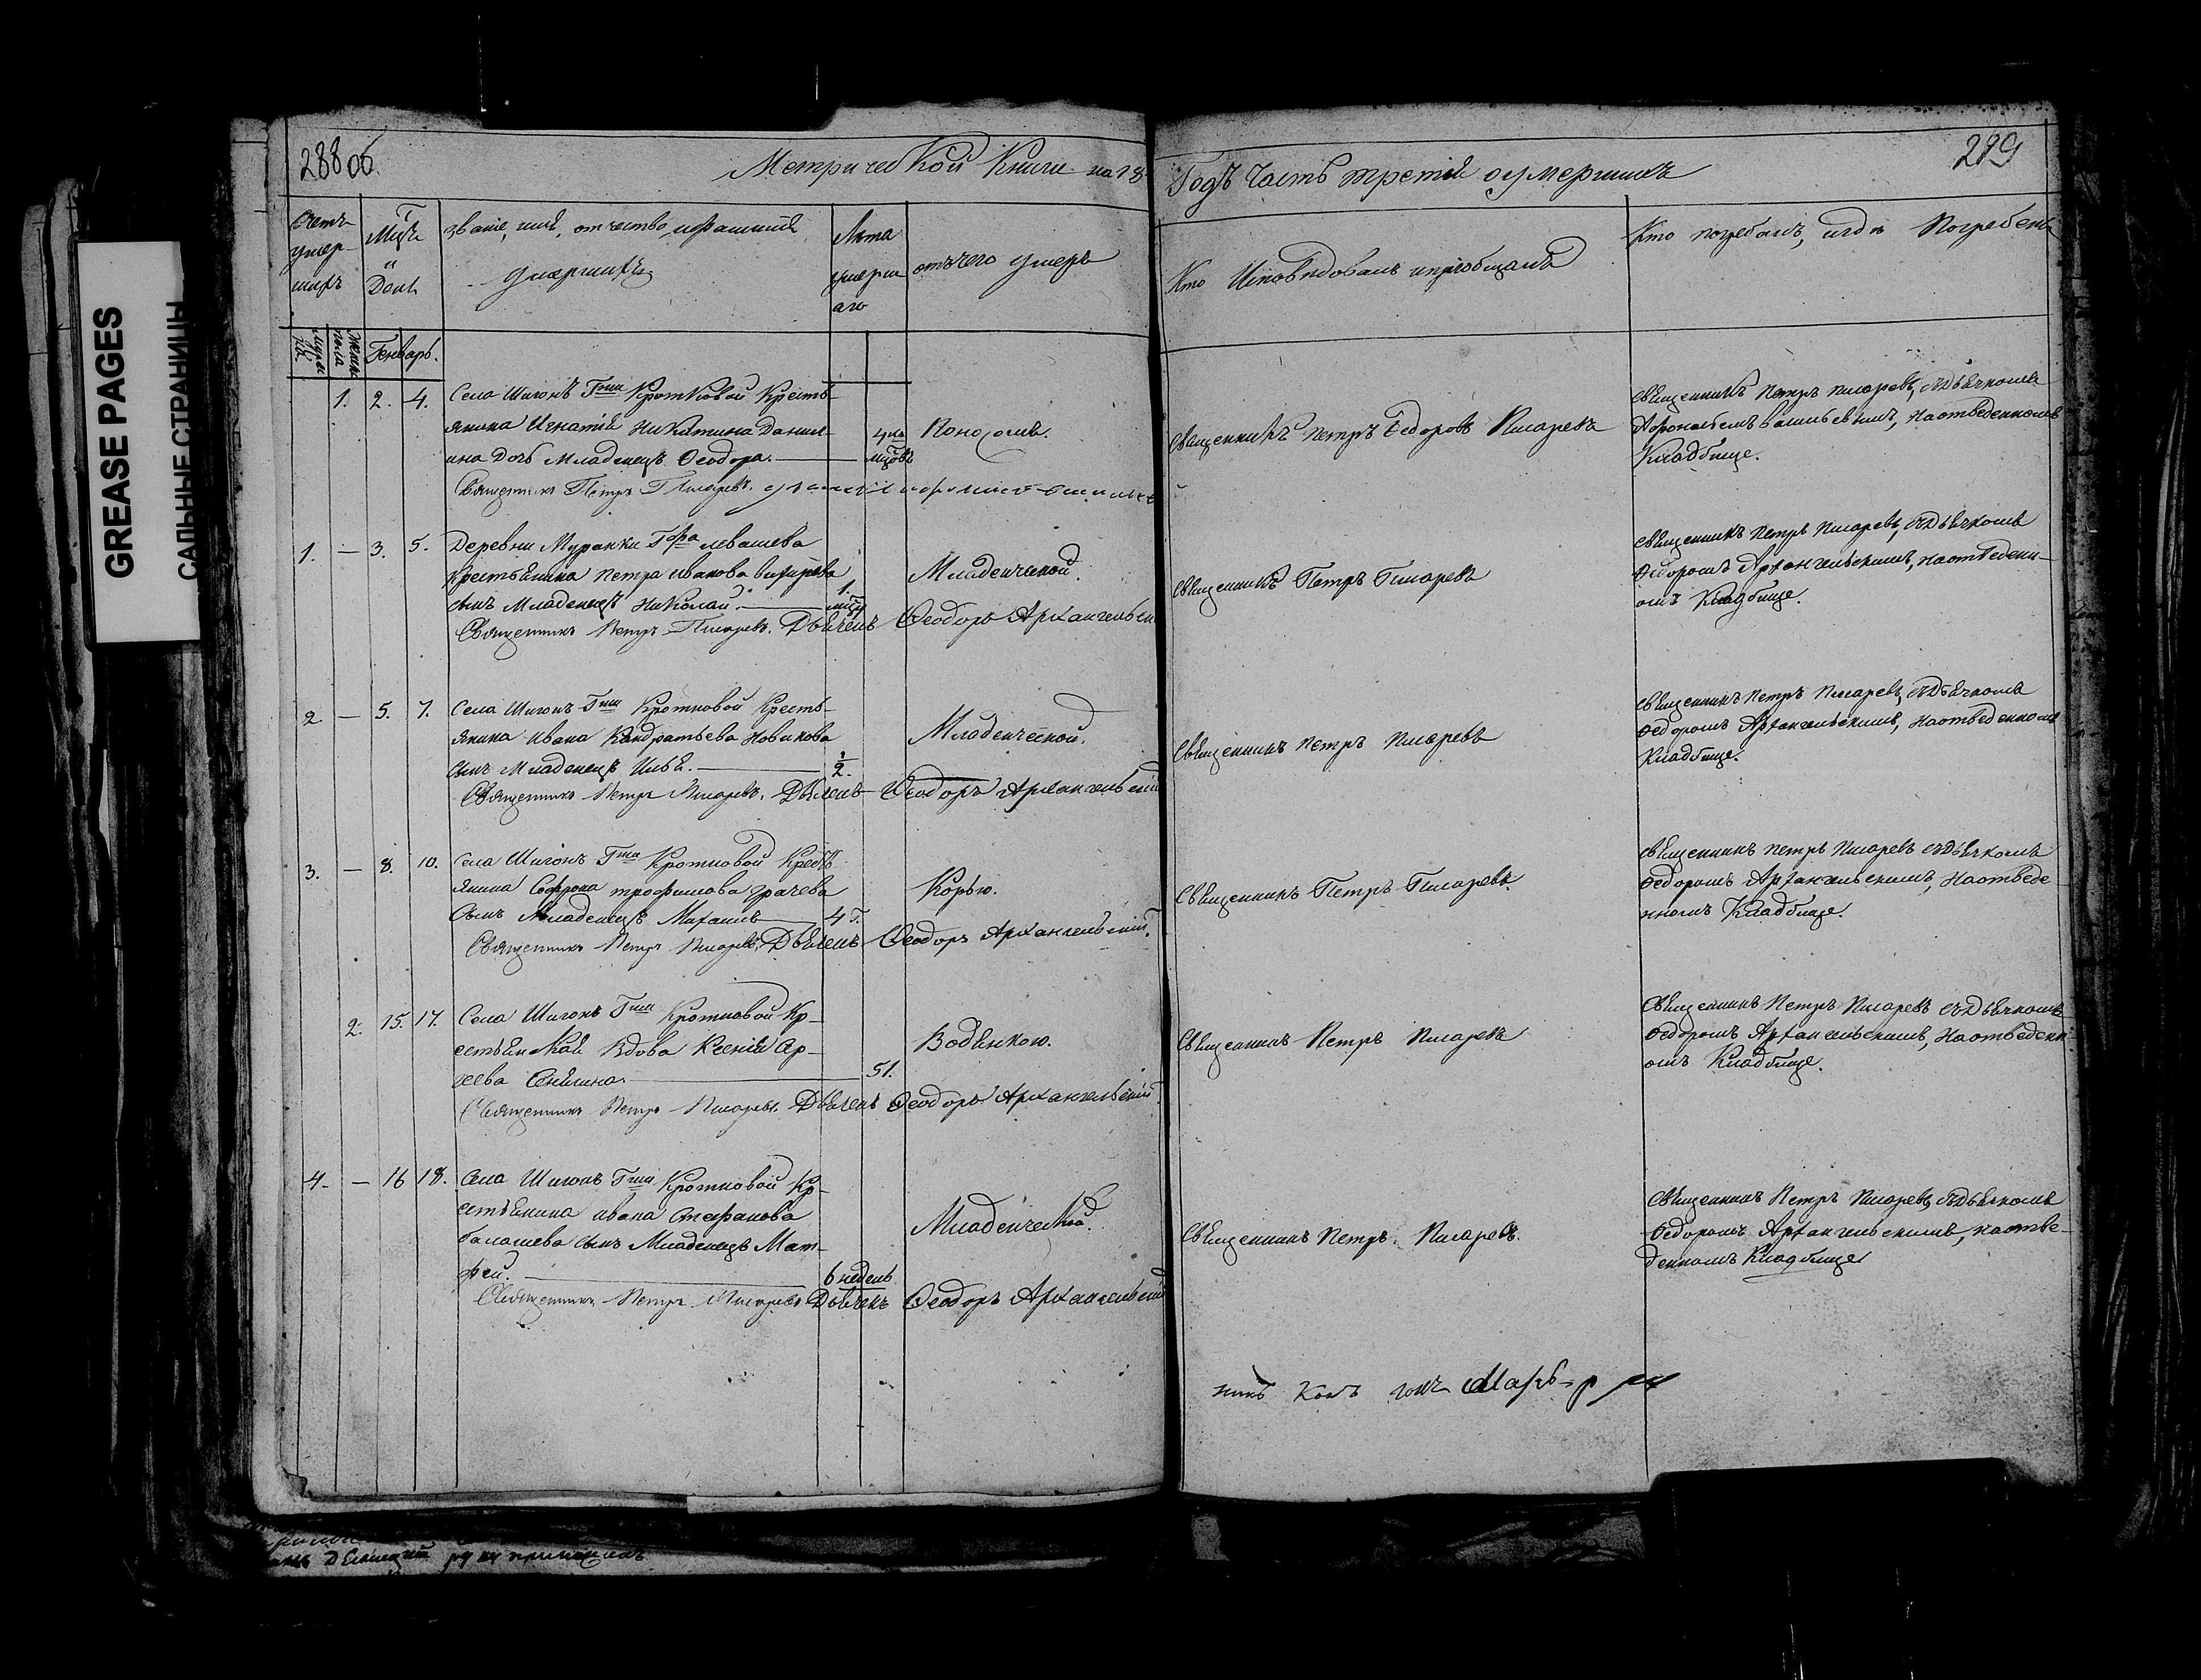 GREASE PAGES
САЛЬНЫЕ СТРАНИЦЫ
288 об.
Метрической Книги на 18
Годъ Часть третія о умершихъ
289
Счетъ умер-шихъ
Мцъ и День
Званіе, имя, отчество, и фамилія умершихъ
Лета умерш аго
отъ чего умеръ
Кто Исповедовалъ и приобщалъ
Кто погребалъ, и где Погребены
Муж. пола
Женск. пола
Генварь.
1. 2. 4.
Села Шигонъ Гжи Кротковой Кресть-
янина Игнатія Никитина Данил-
ина дочь Младенецъ Ѳеодора.
4 ме мцовъ
Поносомъ.
Священникъ Петръ Писаревъ.
Священникъ Петръ Ѳедоровъ Писаревъ
Священникъ Петръ Писаревъ, съ Дьячкомъ
Васильевымъ, на отведенномъ
Кладбище.
1. — 3. 5.
Деревни Муранки Г Левашева
Крестьянина Петра Иванова
сынъ Младенецъ Николай.
1. мцъ
Младенческой.
Священникъ Петръ Писаревъ. Дьячекъ Ѳеодоръ Архангельск
Священникъ Петръ Писаревъ
Священникъ Петръ Писаревъ, съ Дьячкомъ
Ѳедоромъ Архангельскимъ, на отведенн-
омъ Кладбище.
2. — 5. 7.
Села Шигонъ Гжи Кротковой Кресть-
янина Ивана Кандратьева Новикова
сынъ Младенецъ Илья.
1/2.
Младенческой.
Священникъ Петръ Писаревъ. Дьячекъ Ѳеодоръ Архангельскій
Священникъ Петръ Писаревъ
Священникъ Петръ Писаревъ, съ Дьячкомъ
Ѳедоромъ Архангельскимъ, на отведенномъ
Кладбище.
3. — 8. 10.
Села Шигонъ Гжи Кротковой Кресть-
янина Софрона Трофимова Грачева
Сынъ Младенецъ Михаилъ
4 г.
Корью.
Священникъ Петръ Писаревъ. Дьячекъ Ѳеодоръ Архангельскій.
Священникъ Петръ Писаревъ.
Священникъ Петръ Писаревъ съ Дьячкомъ
Ѳедоромъ Архангельскимъ, на отведе-
нномъ Кладбище.
2. 15. 17.
Села Шигонъ Гжи Кротковой Кр-
естьянская Вдова Ксенія Ар-
51.
Водянкою.
Священникъ Петръ Писаревъ. Дьячекъ Ѳеодоръ Архангельскій
Священникъ Петръ Писаревъ
Священникъ Петръ Писаревъ съ Дьячкомъ
Ѳедоромъ Архангельскимъ, на отведенн-
омъ Кладбище.
4. — 16 18.
Села Шигонъ Гжи Кротковой Кр-
естьянина Ивана Стефанова
Балашева сынъ Младенецъ Мат-
фей.
6 недель
Младенческой.
Священникъ Петръ Писаревъ Дьячекъ Ѳеодоръ Архангельскій
Священникъ Петръ Писаревъ.
Священникъ Петръ Писаревъ, съ Дьячкомъ
Ѳедоромъ Архангельскимъ, на отве-
денномъ Кладбище